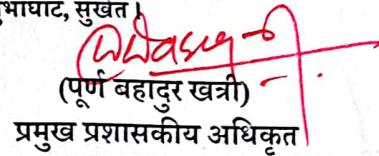 भाघाट, सुर्खेत।
(पूर्ण बहादुर खत्री)
प्रमुख प्रशासकीय अधिकृत